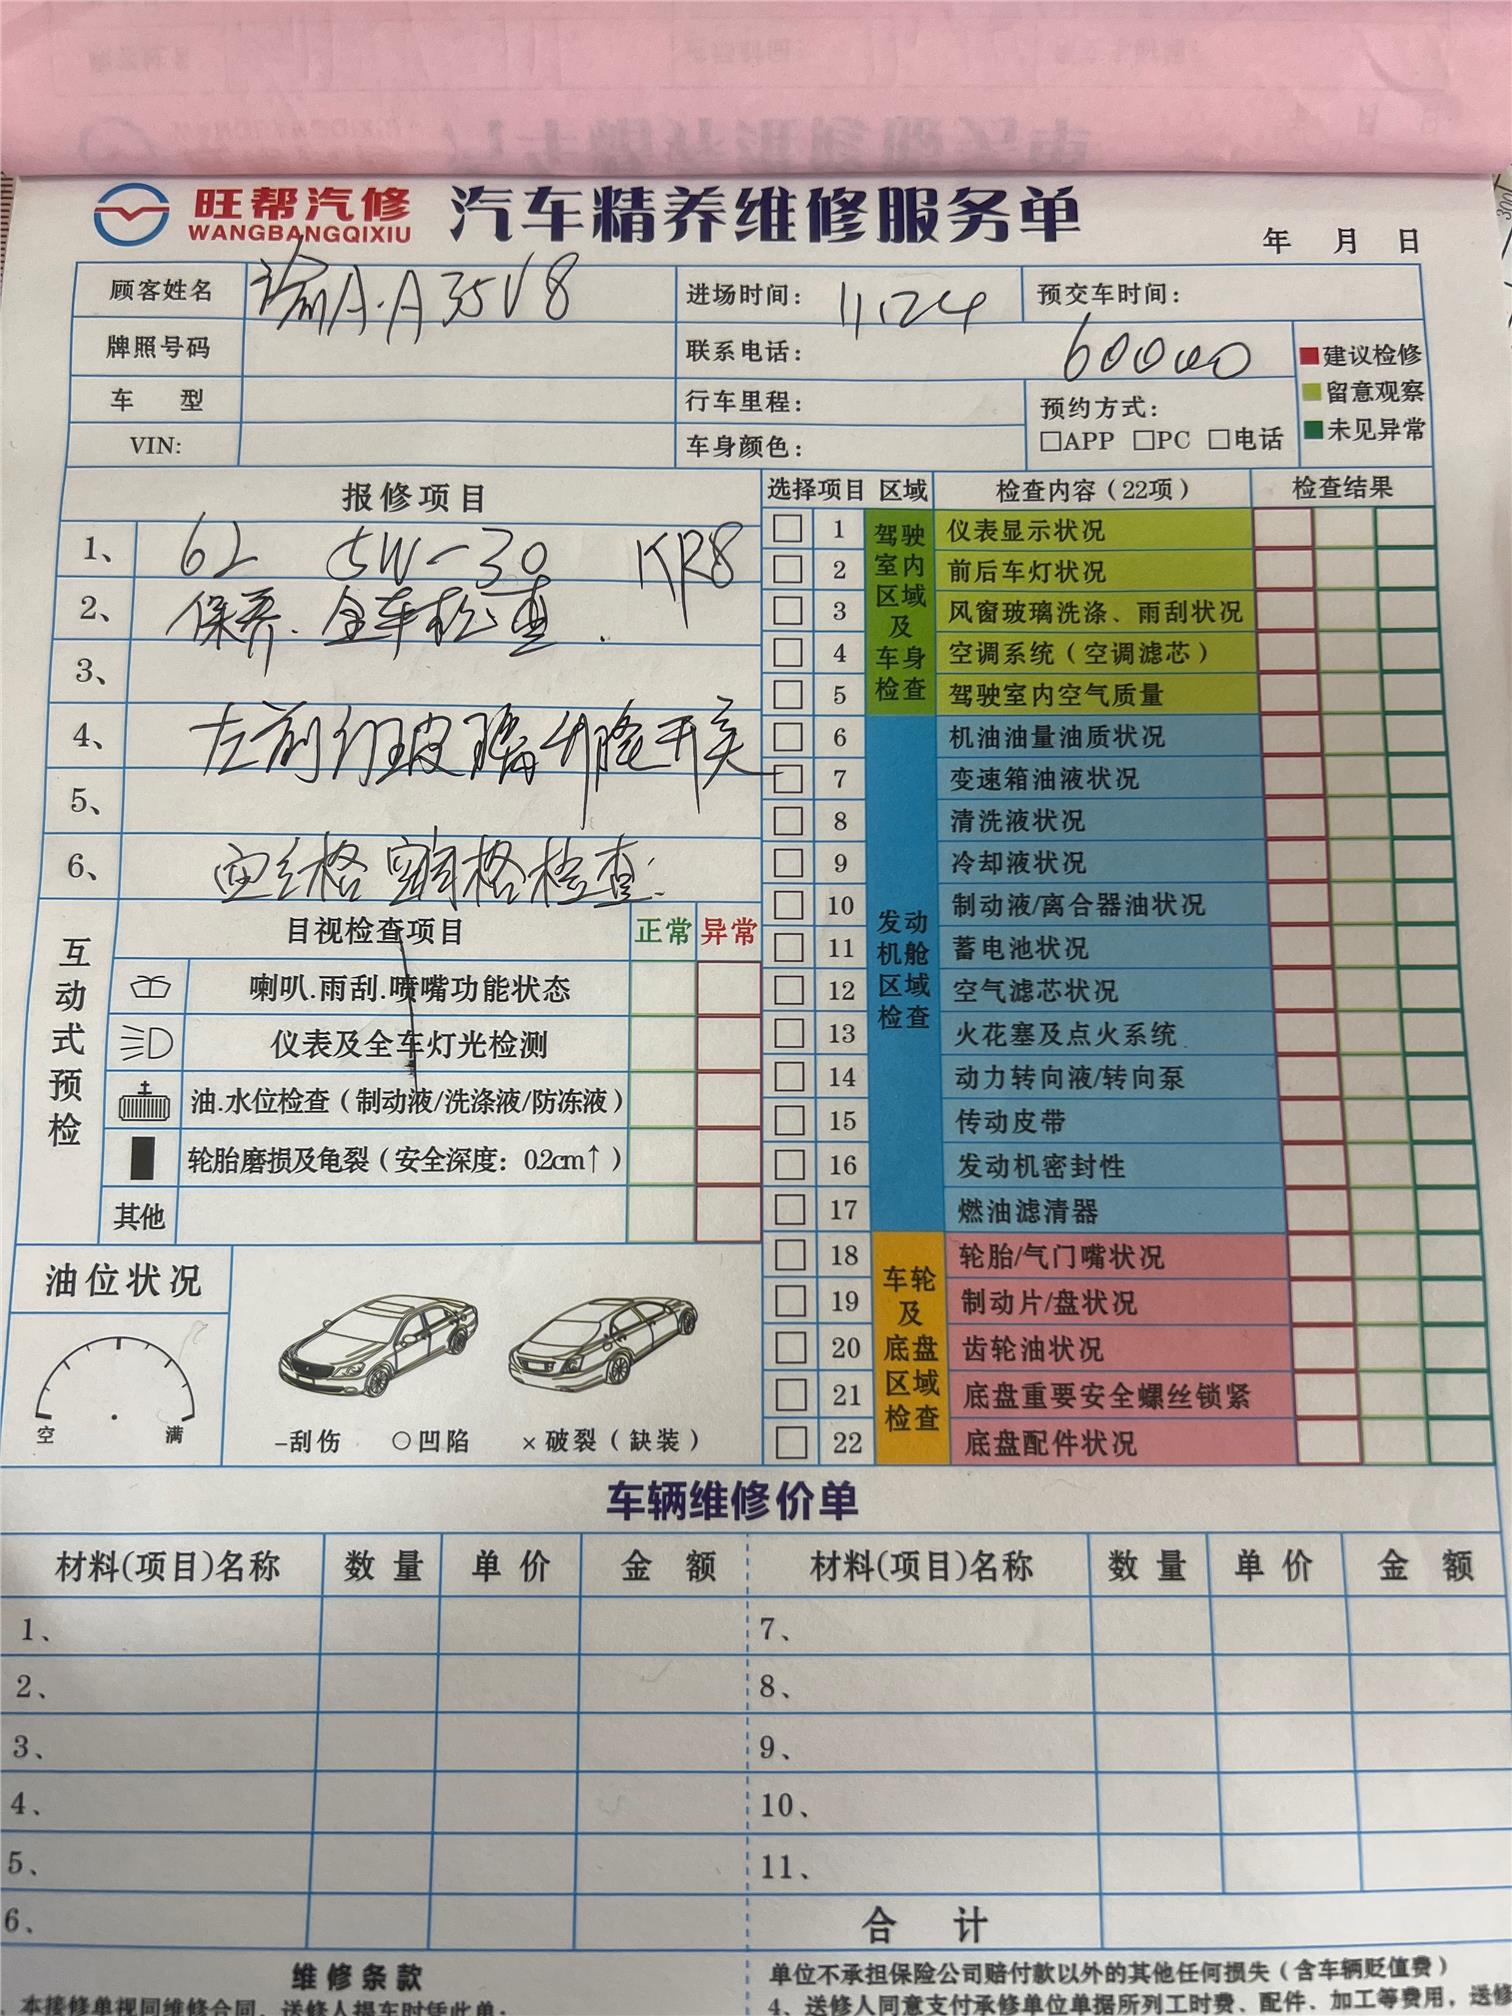 旺帮汽修
WANGBANGQIXIU
汽车精养维修服务单
年 月 日
顾客姓名 渝A·A35V8 进场时间： 11.24 预交车时间：
牌照号码 联系电话： 60000
车 型 行车里程： 预约方式：
□APP □PC □电话
VIN: 车身颜色：
建议检修
留意观察
未见异常
报修项目
1、 6L 5W-30 KR8
2、 保养.全车检查.
3、
4、 左前门玻璃升降开关
5、
6、 空格 空调格检查.
互动式预检
目视检查项目 正常 异常
喇叭.雨刮.喷嘴功能状态
仪表及全车灯光检测
油.水位检查（制动液/洗涤液/防冻液）
轮胎磨损及龟裂（安全深度：0.2cm↑）
其他
油位状况
空 满
–刮伤 ○凹陷 ×破裂（缺装）
选择项目 区域 检查内容（22项） 检查结果
驾驶室内区域及车身检查
1 仪表显示状况
2 前后车灯状况
3 风窗玻璃洗涤、雨刮状况
4 空调系统（空调滤芯）
5 驾驶室内空气质量
发动机舱区域检查
6 机油油量油质状况
7 变速箱油液状况
8 清洗液状况
9 冷却液状况
10 制动液/离合器油状况
11 蓄电池状况
12 空气滤芯状况
13 火花塞及点火系统
14 动力转向液/转向泵
15 传动皮带
16 发动机密封性
17 燃油滤清器
车轮及底盘区域检查
18 轮胎/气门嘴状况
19 制动片/盘状况
20 齿轮油状况
21 底盘重要安全螺丝锁紧
22 底盘配件状况
车辆维修价单
材料(项目)名称 数量 单价 金额 材料(项目)名称 数量 单价 金额
1、 7、
2、 8、
3、 9、
4、 10、
5、 11、
6、 合 计
维修条款
本接修单视同维修合同，送修人提车时凭此单；
单位不承担保险公司赔付款以外的其他任何损失（含车辆贬值费）
4、送修人同意支付承修单位单据所列工时费、配件、加工等费用，送修